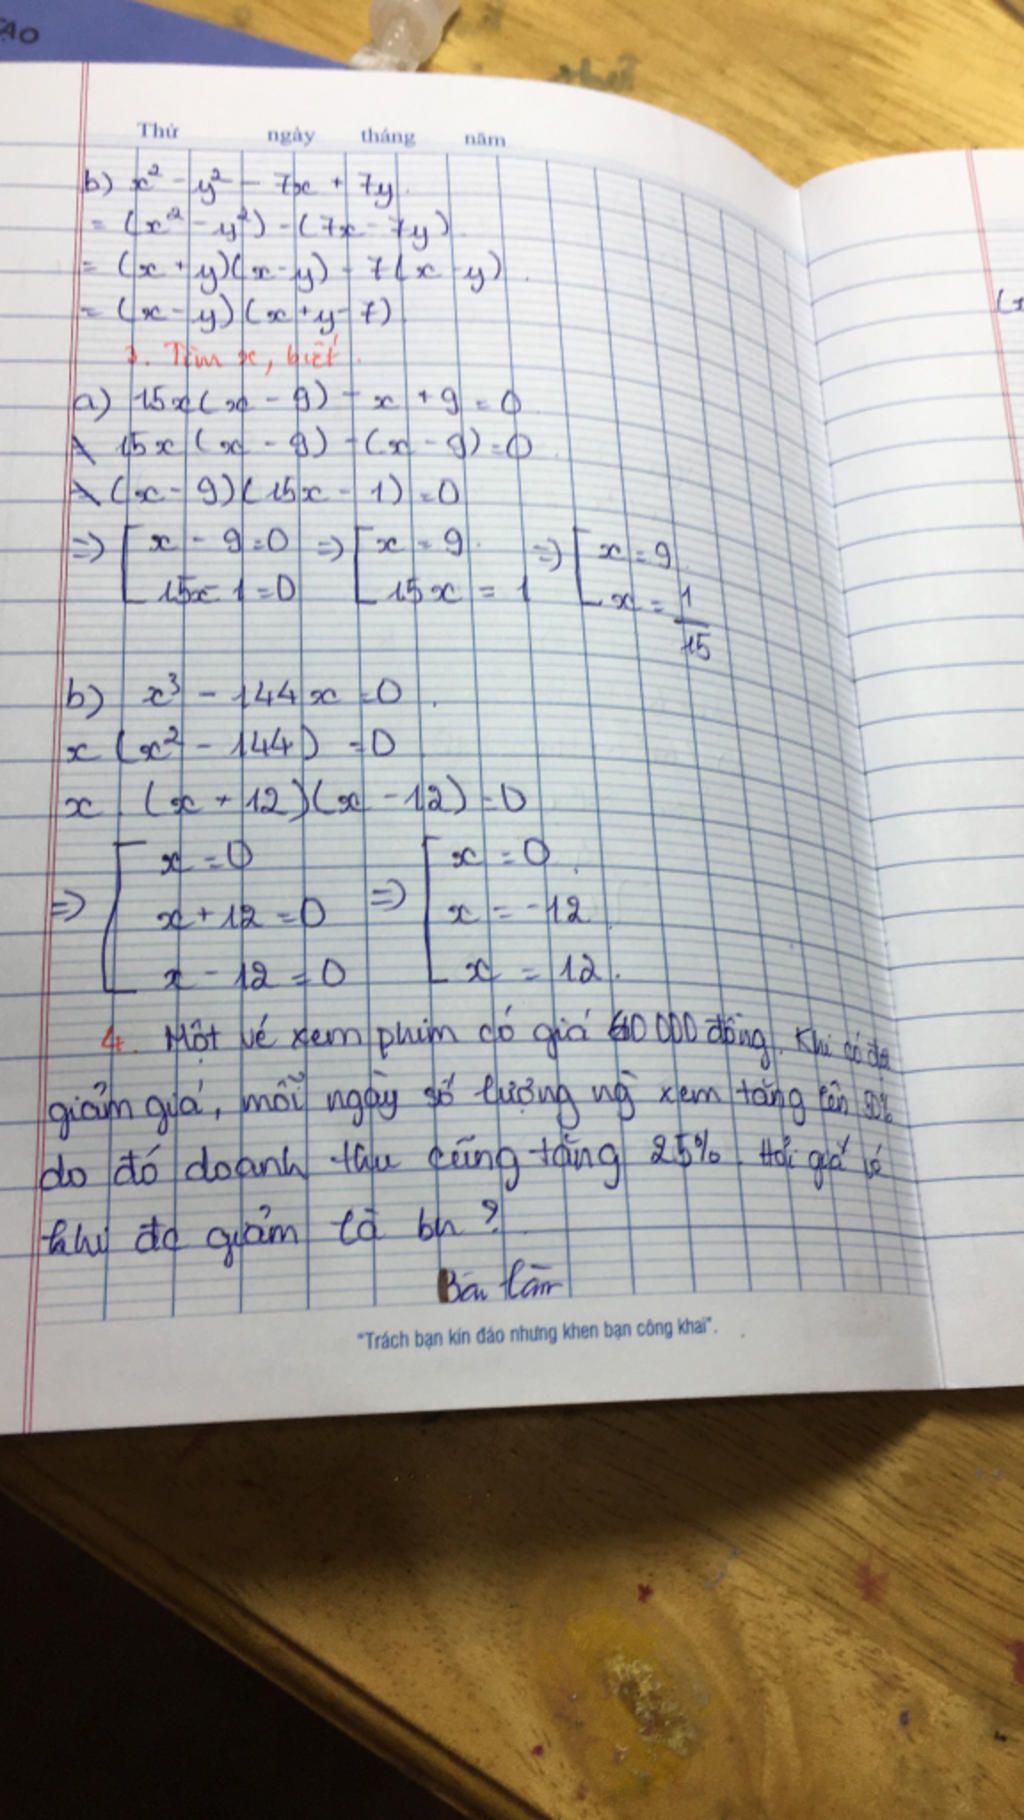 ẠO
Thứ ngày tháng năm
b) x² - y² - 7x + 7y
= (x² - y²) - (7x - 7y)
= (x + y)(x - y) - 7(x - y)
= (x - y)(x + y - 7)
3. Tìm x, biết
a) 15x(x - 9) - x + 9 = 0
15x (x - 9) - (x - 9) = 0
(x - 9)(15x - 1) = 0
=> [ x - 9 = 0 => [ x = 9 => [ x = 9
15x - 1 = 0 15x = 1 x = 1/15
b) x³ - 144x = 0
x (x² - 144) = 0
x (x + 12)(x - 12) = 0
=> [ x = 0 => [ x = 0
x + 12 = 0 x = -12
x - 12 = 0 x = 12
4. Một vé xem phim có giá 60 000 đồng. Khi có đợt
giảm giá, mỗi ngày số lượng ng xem tăng lên 50%
do đó doanh thu cũng tăng 25%. Hỏi giá vé
khi đã giảm là bn?
Bài làm
"Trách bạn kín đáo nhưng khen bạn công khai".